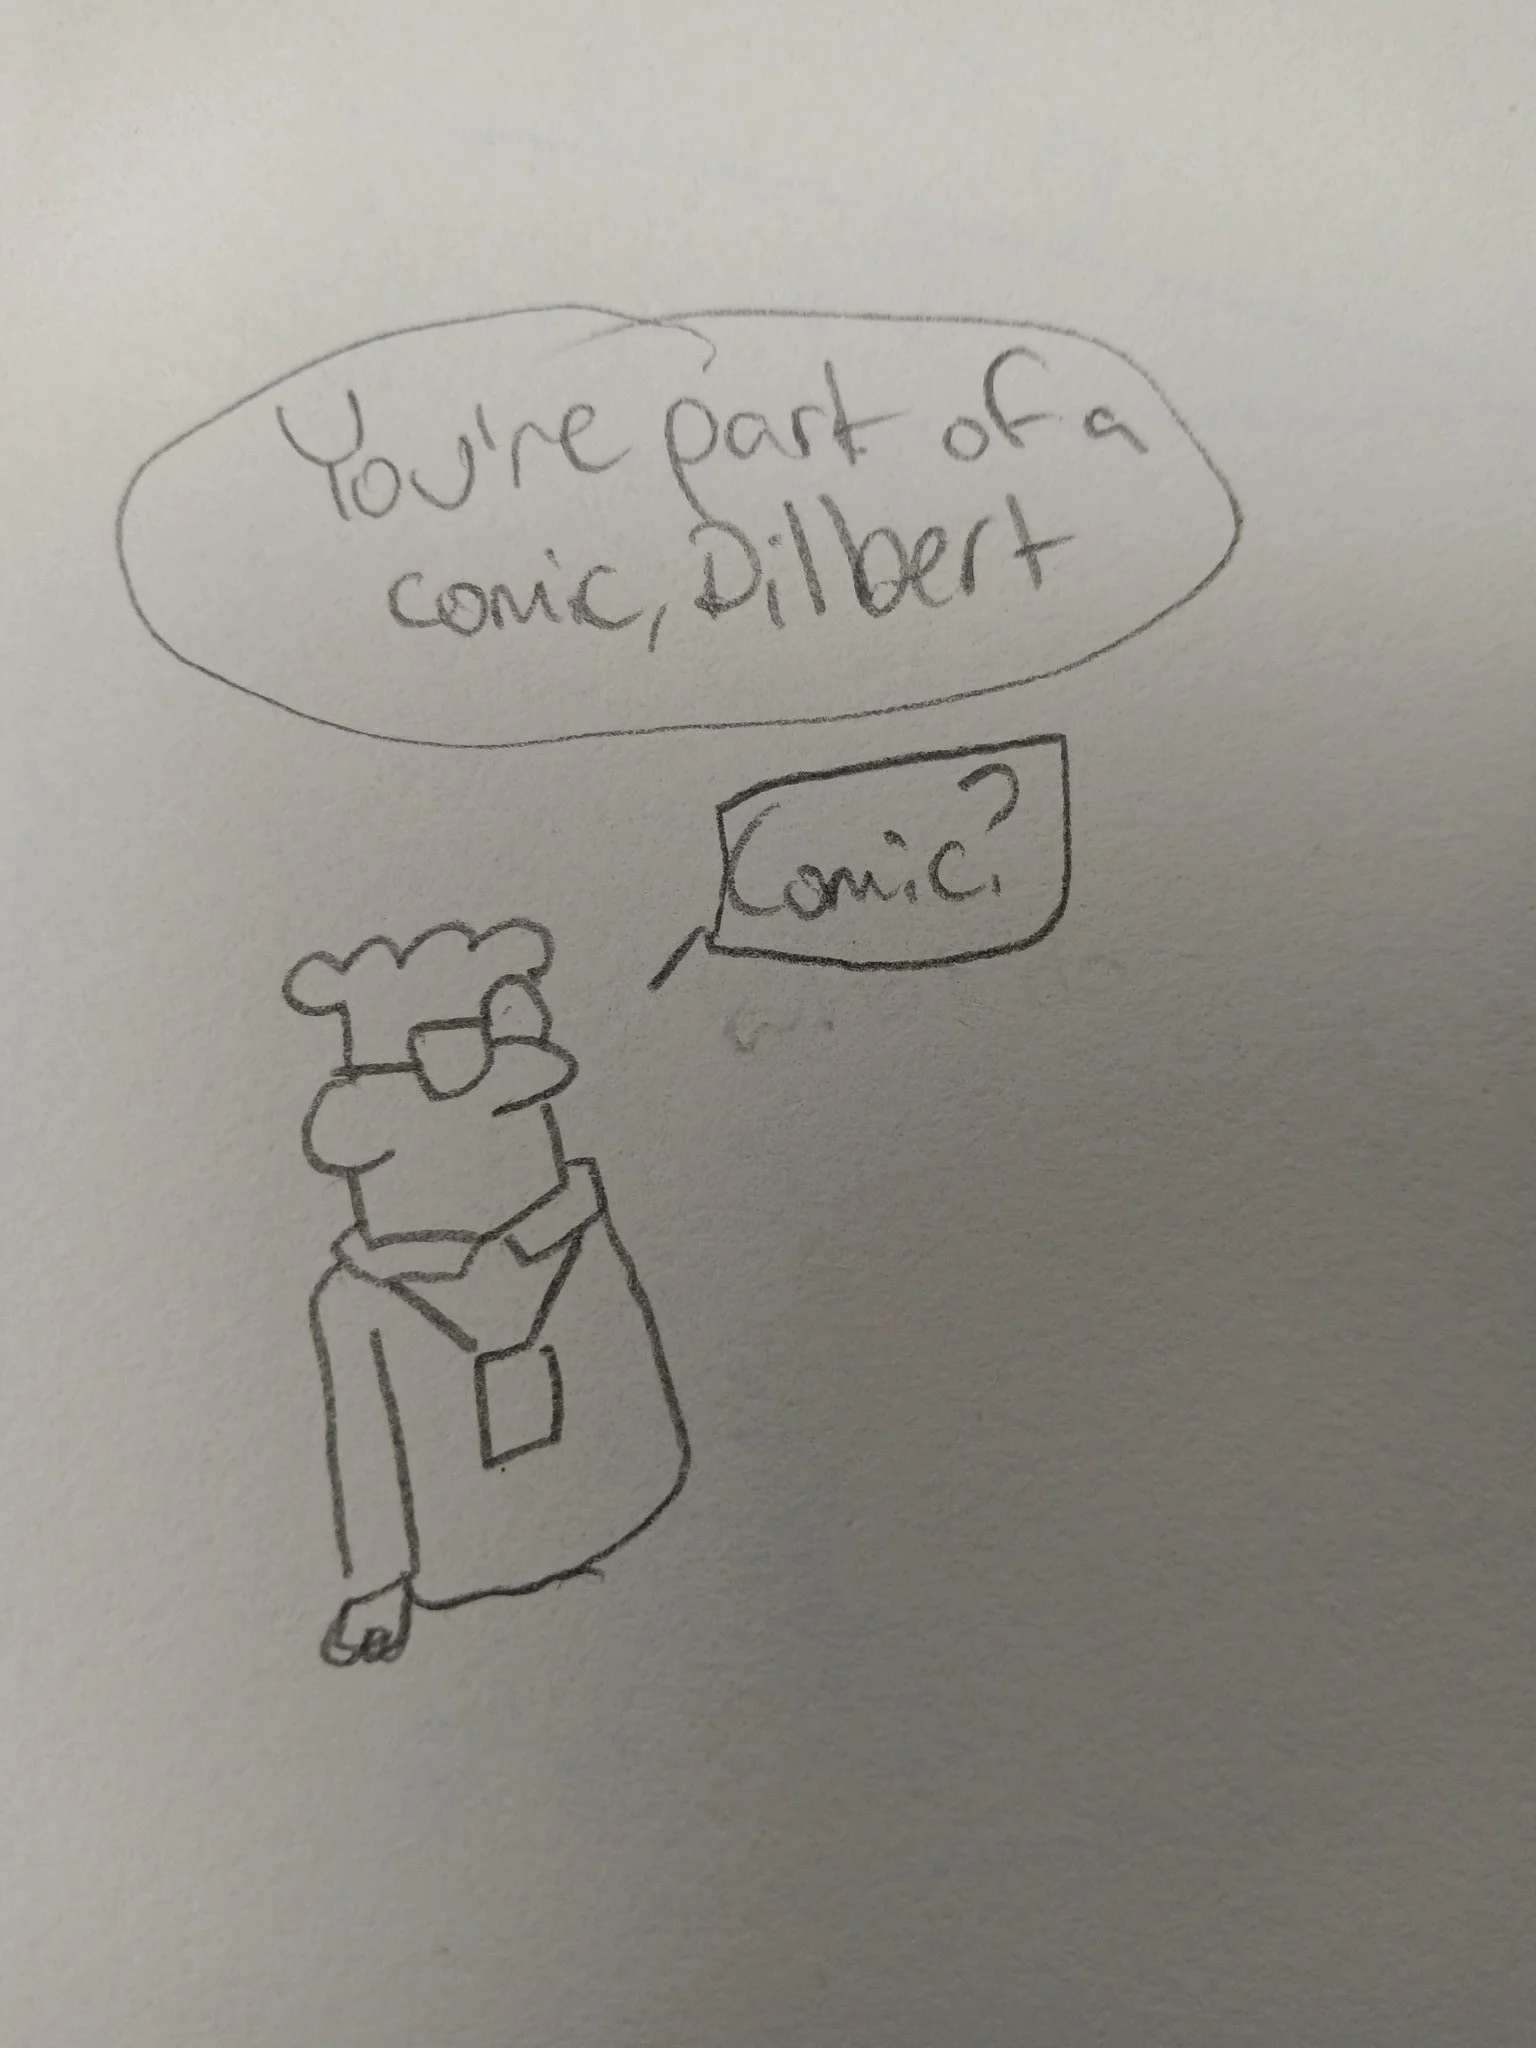 You're part of a
comic, Dilbert
Comic?